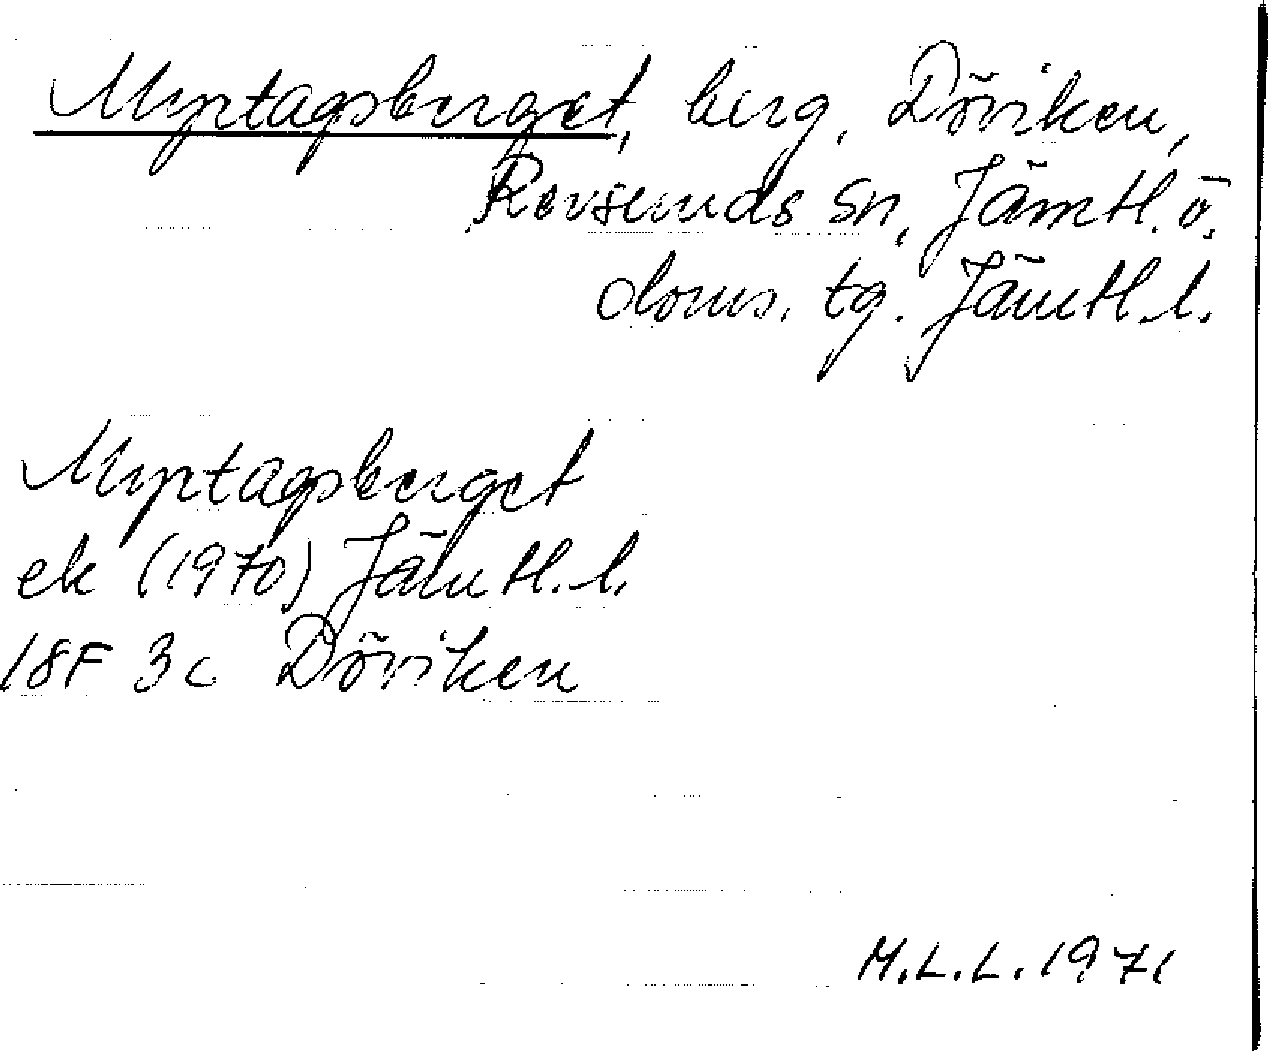 Myrtagsberget, berg, Döviken,
Revsunds sn, Jämtl. ö.
doms. tg. Jämtl. l.
Myrtagsberget
ek (1970) Jämtl. l.
18F 3c Döviken
M.L.L. 1971